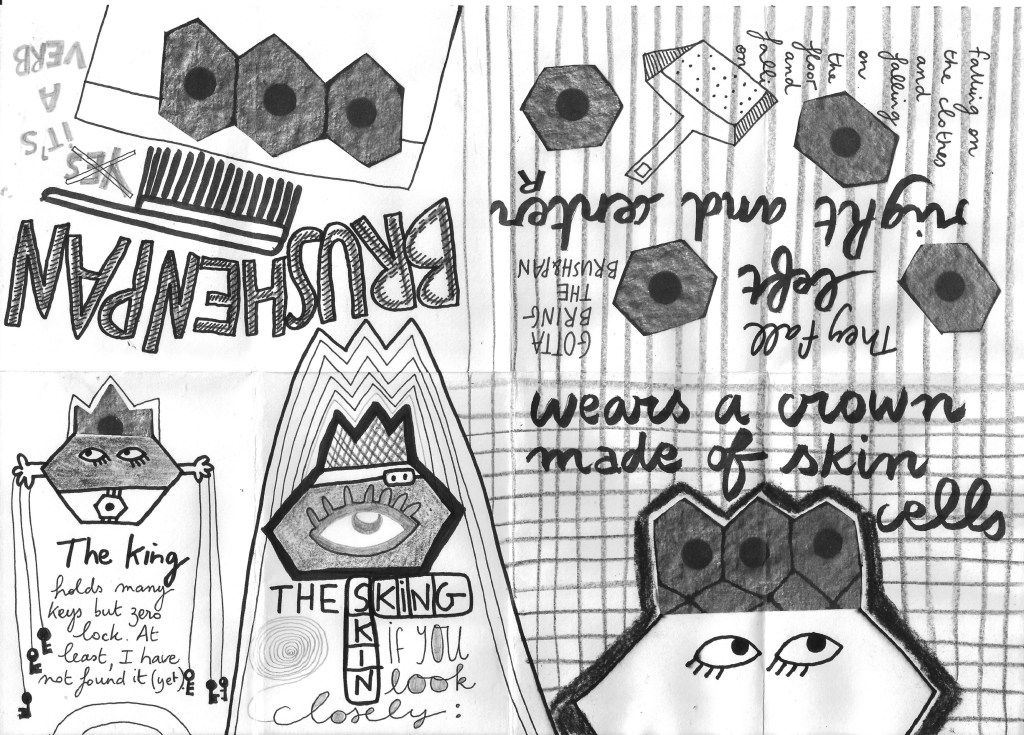 The king
holds many
keys but zero
lock. At
least, I have
not found it (yet)
THE SKiNG
SKIN
iF YOU
look
closely:
wears a crown
made of skin
cells
They fall
left
right and center
R
falling on
the clothes
and
falling
on
the
floor
and
falli
on
GOTTA
BRING-
THE
BRUSH&PAN
BRUSHENPAN
YES
iT'S
A
VERB